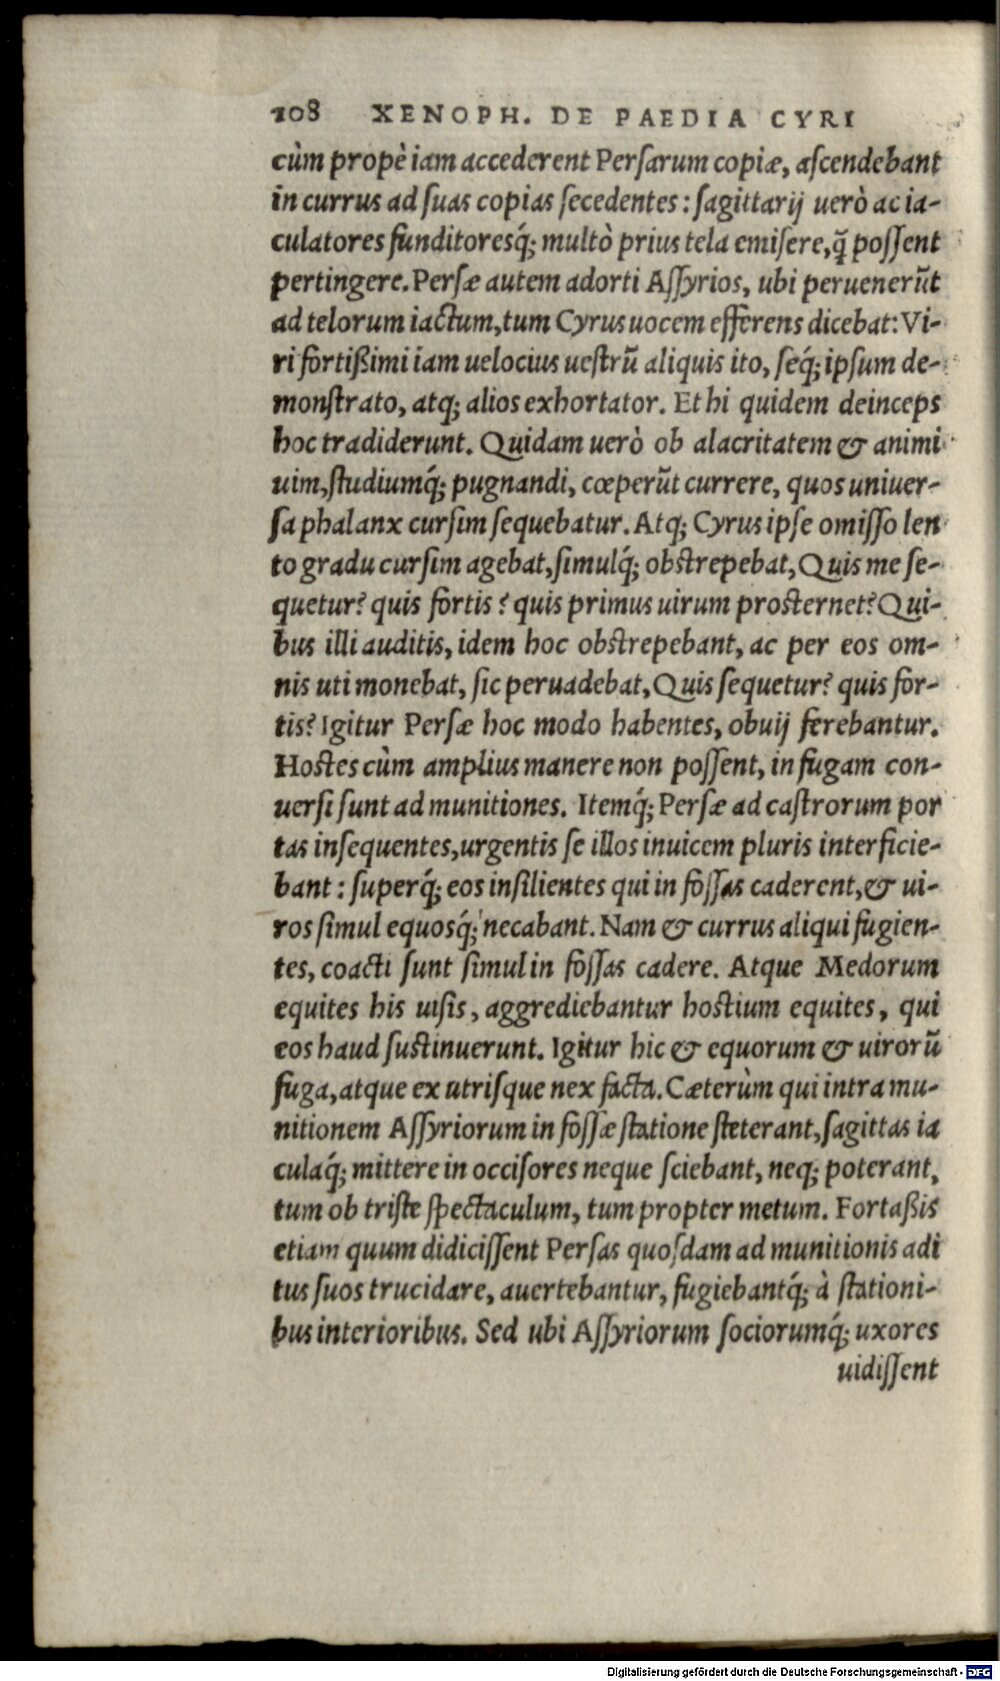 108 XENOPH. DE PAEDIA CYRI
cùm propè iam accederent Persarum copiæ, ascendebant
in currus ad suas copias secedentes: sagittarij uerò ac ia-
culatores funditoresq́; multò prius tela emisere, q̃ possent
pertingere. Persæ autem adorti Assyrios, ubi peruenerũt
ad telorum iactum, tum Cyrus uocem efferens dicebat: Vi-
ri fortißimi iam uelocius uestrũ aliquis ito, seq́; ipsum de-
monstrato, atq; alios exhortator. Et hi quidem deinceps
hoc tradiderunt. Quidam uerò ob alacritatem & animi
uim, studiumq́; pugnandi, cœperũt currere, quos uniuer-
sa phalanx cursim sequebatur. Atq; Cyrus ipse omisso len
to gradu cursim agebat, simulq́; obstrepebat, Quis me se-
quetur? quis fortis? quis primus uirum prosternet? Qui-
bus illi auditis, idem hoc obstrepebant, ac per eos om-
nis uti monebat, sic peruadebat, Quis sequetur? quis for-
tis? Igitur Persæ hoc modo habentes, obuij ferebantur.
Hostes cùm amplius manere non possent, in fugam con-
uersi sunt ad munitiones. Itemq́; Persæ ad castrorum por
tas insequentes, urgentis se illos inuicem pluris interficie-
bant: superq́; eos insilientes qui in fossas caderent, & ui-
ros simul equosq́; necabant. Nam & currus aliqui fugien-
tes, coacti sunt simul in fossas cadere. Atque Medorum
equites his uisis, aggrediebantur hostium equites, qui
eos haud sustinuerunt. Igitur hic & equorum & uirorũ
fuga, atque ex utrisque nex facta. Cæterùm qui intra mu-
nitionem Assyriorum in fossæ statione steterant, sagittas ia
culaq́; mittere in occisores neque sciebant, neq; poterant,
tum ob triste spectaculum, tum propter metum. Fortaßis
etiam quum didicissent Persas quosdam ad munitionis adi
tus suos trucidare, auertebantur, fugiebantq́; à stationi-
bus interioribus. Sed ubi Assyriorum sociorumq́; uxores
uidissent
Digitalisierung gefördert durch die Deutsche Forschungsgemeinschaft - DFG